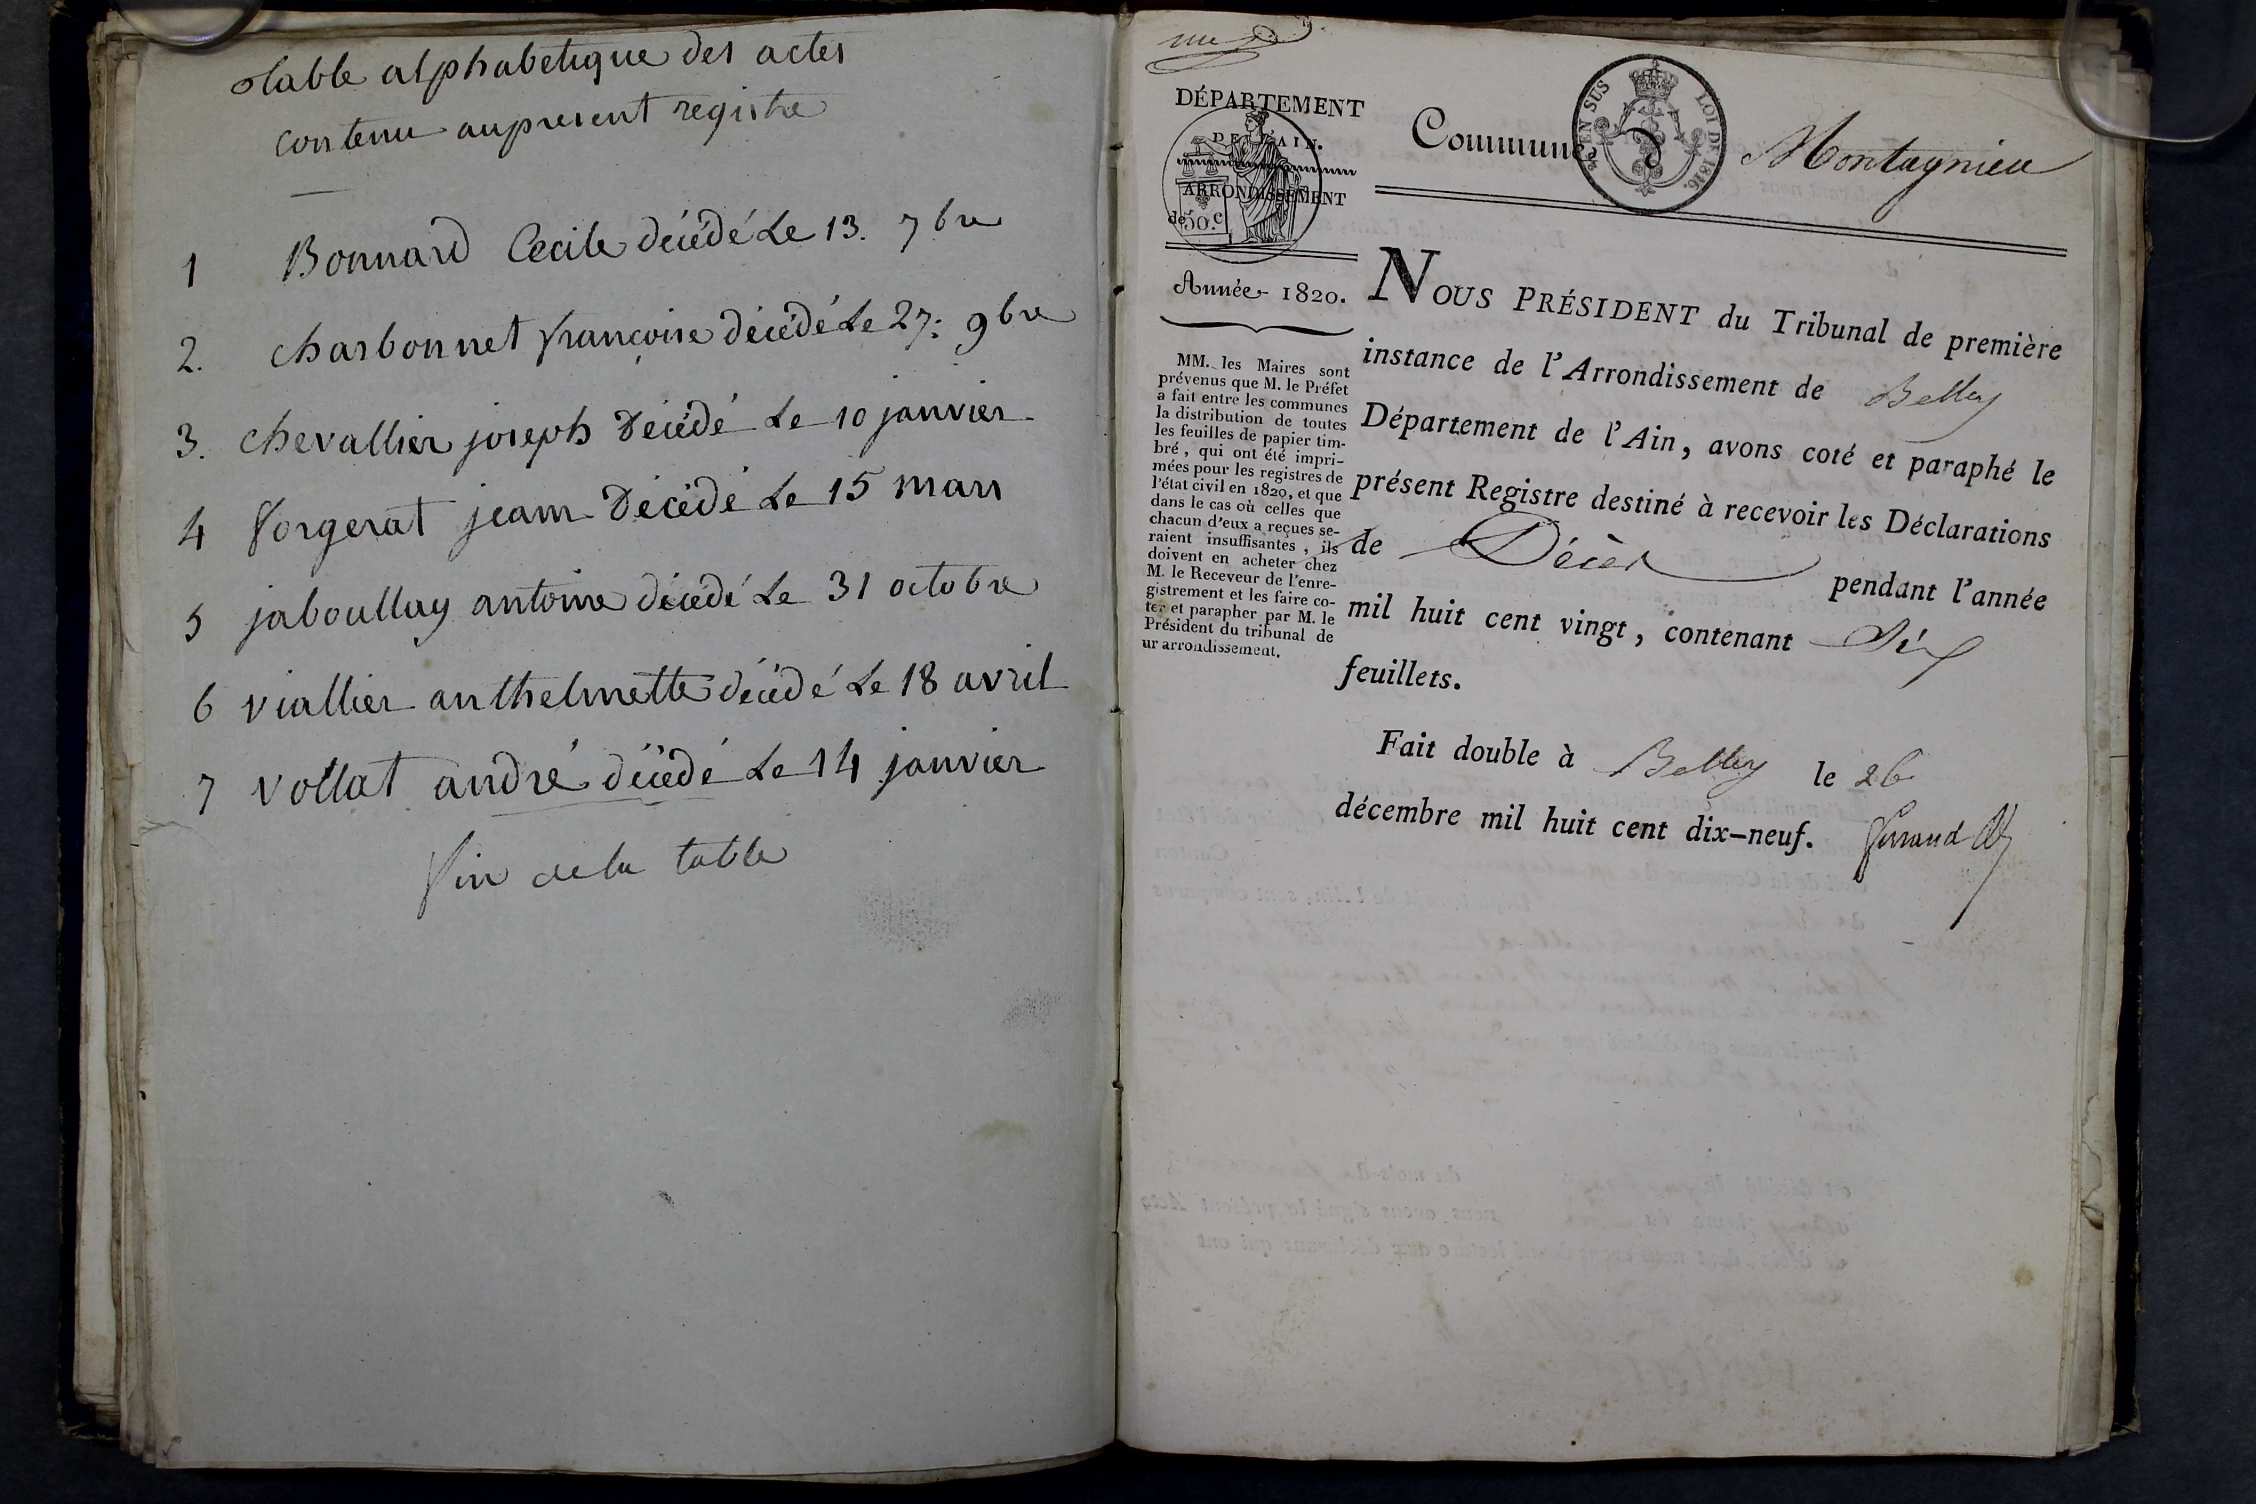 table alphabetique des actes
contenu aupresent registre
1 Bonnard Cecile décédé Le 13. 7bre
2. charbonnet françoise décédé Le 27: 9bre
3. chevallier joseph Décédé Le 10 janvier
4 forgerat jean Décédé Le 15 mars
5 jaboullay antoine décédé Le 31 octobre
6 viallier anthelmette décédé Le 18 avril
7 vollat andré décédé Le 14 janvier
fin dela table
DÉPARTEMENT
DE L'AIN.
ARRONDISSEMENT
de
50.c
Commune d
EN SUS
LOI DE 1816.
Montagnieu
Année 1820.
MM. les Maires sont
prévenus que M. le Préfet
a fait entre les communes
la distribution de toutes
les feuilles de papier tim-
bré, qui ont été impri-
mées pour les registres de
l'état civil en 1820, et que
dans le cas où celles que
chacun d'eux a reçues se-
raient insuffisantes, ils
doivent en acheter chez
M. le Receveur de l'enre-
gistrement et les faire co-
ter et parapher par M. le
Président du tribunal de
ur arrondissement.
NOUS PRÉSIDENT du Tribunal de première
instance de l'Arrondissement de Belley
Département de l'Ain, avons coté et paraphé le
présent Registre destiné à recevoir les Déclarations
de Décès pendant l'année
mil huit cent vingt, contenant Six
feuillets.
Fait double à Belley le 26
décembre mil huit cent dix-neuf.